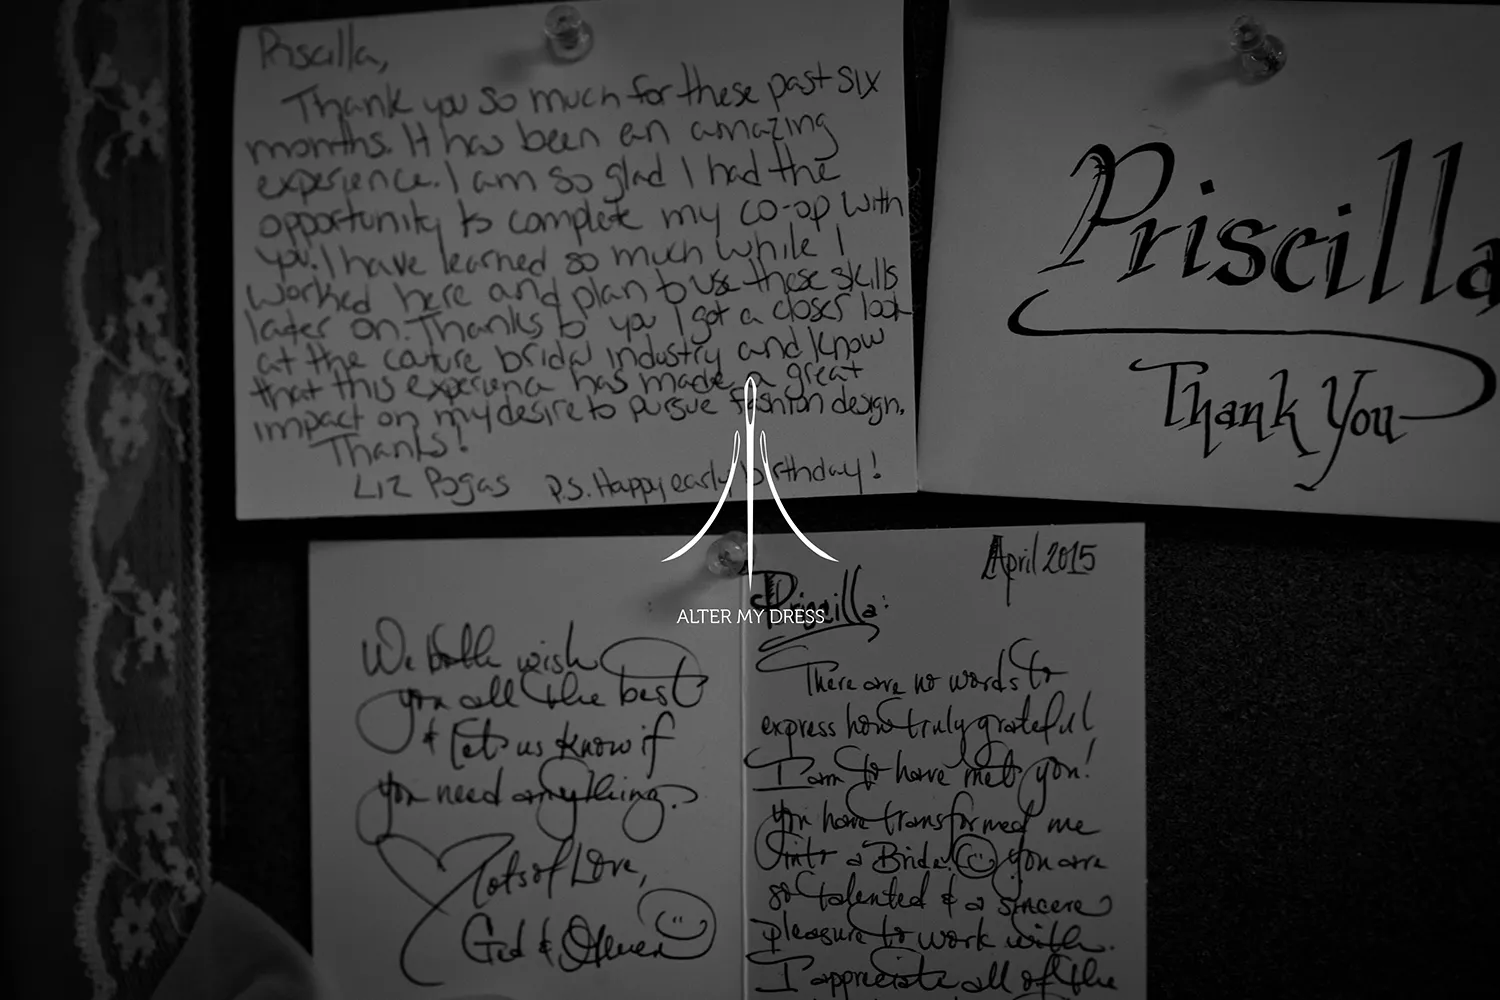 Priscilla,
Thank you so much for these past six
months. It has been an amazing
experience. I am so glad I had the
opportunity to complete my co-op with
you. I have learned so much while I
worked here and plan to use these skills
later on. Thanks to you I got a closer look
at the couture bridal industry and know
that this experience has made a great
impact on my desire to pursue fashion design.
Thanks!
Liz Pogas P.S. Happy early birthday!
Priscilla
Thank You
ALTER MY DRESS
We both wish
you all the best
& let us know if
you need anything.
Lots of Love,
&
April 2015
Priscilla:
There are no words to
express how truly grateful
I am to have met you!
You have transformed me
into a Bride. You are
so talented & a sincere
pleasure to work with.
I appreciate all of the